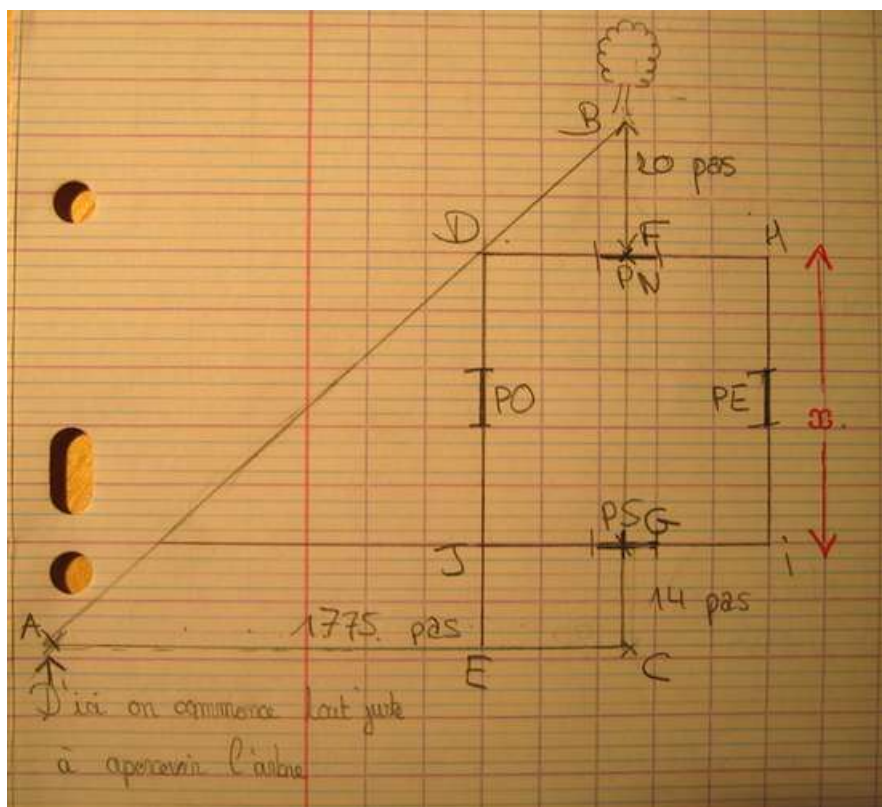 B
20 pas
D F H
PN
PO PE x.
PS G
J i
14 pas
A 1775 pas
E C
D'ici on commence tout juste
à apercevoir l'arbre